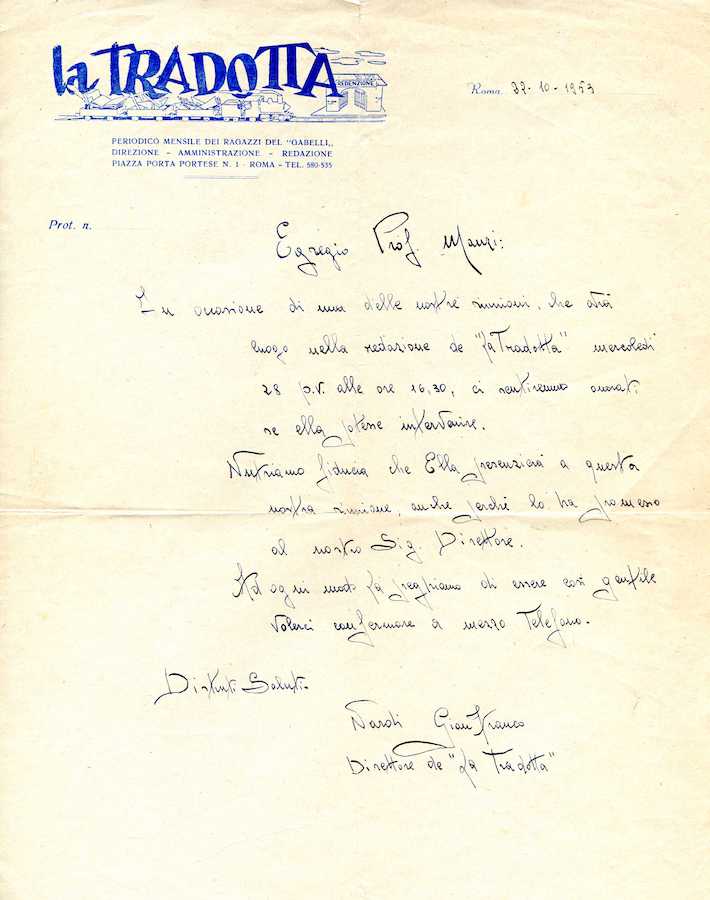 la TRADOTTA
REDENZIONE
PERIODICO MENSILE DEI RAGAZZI DEL "GABELLI„
DIREZIONE - AMMINISTRAZIONE - REDAZIONE
PIAZZA PORTA PORTESE N. 1 - ROMA - TEL. 580-535
Roma, 22-10-1953
Prot. n.
Egregio Prof. Manzi:
In occasione di una delle nostre riunioni, che avrà
luogo nella redazione de "La Tradotta" mercoledì
28 p.v. alle ore 16,30, ci sentiremmo onorati
se ella potesse intervenire.
Nutriamo fiducia che Ella presenzierà a questa
nostra riunione, anche perché lo ha promesso
al nostro Sig. Direttore.
Ad ogni modo La preghiamo di essere così gentile
volerci confermare a mezzo Telefono.
Distinti Saluti
Nardi GianFranco
Direttore de "La Tradotta"